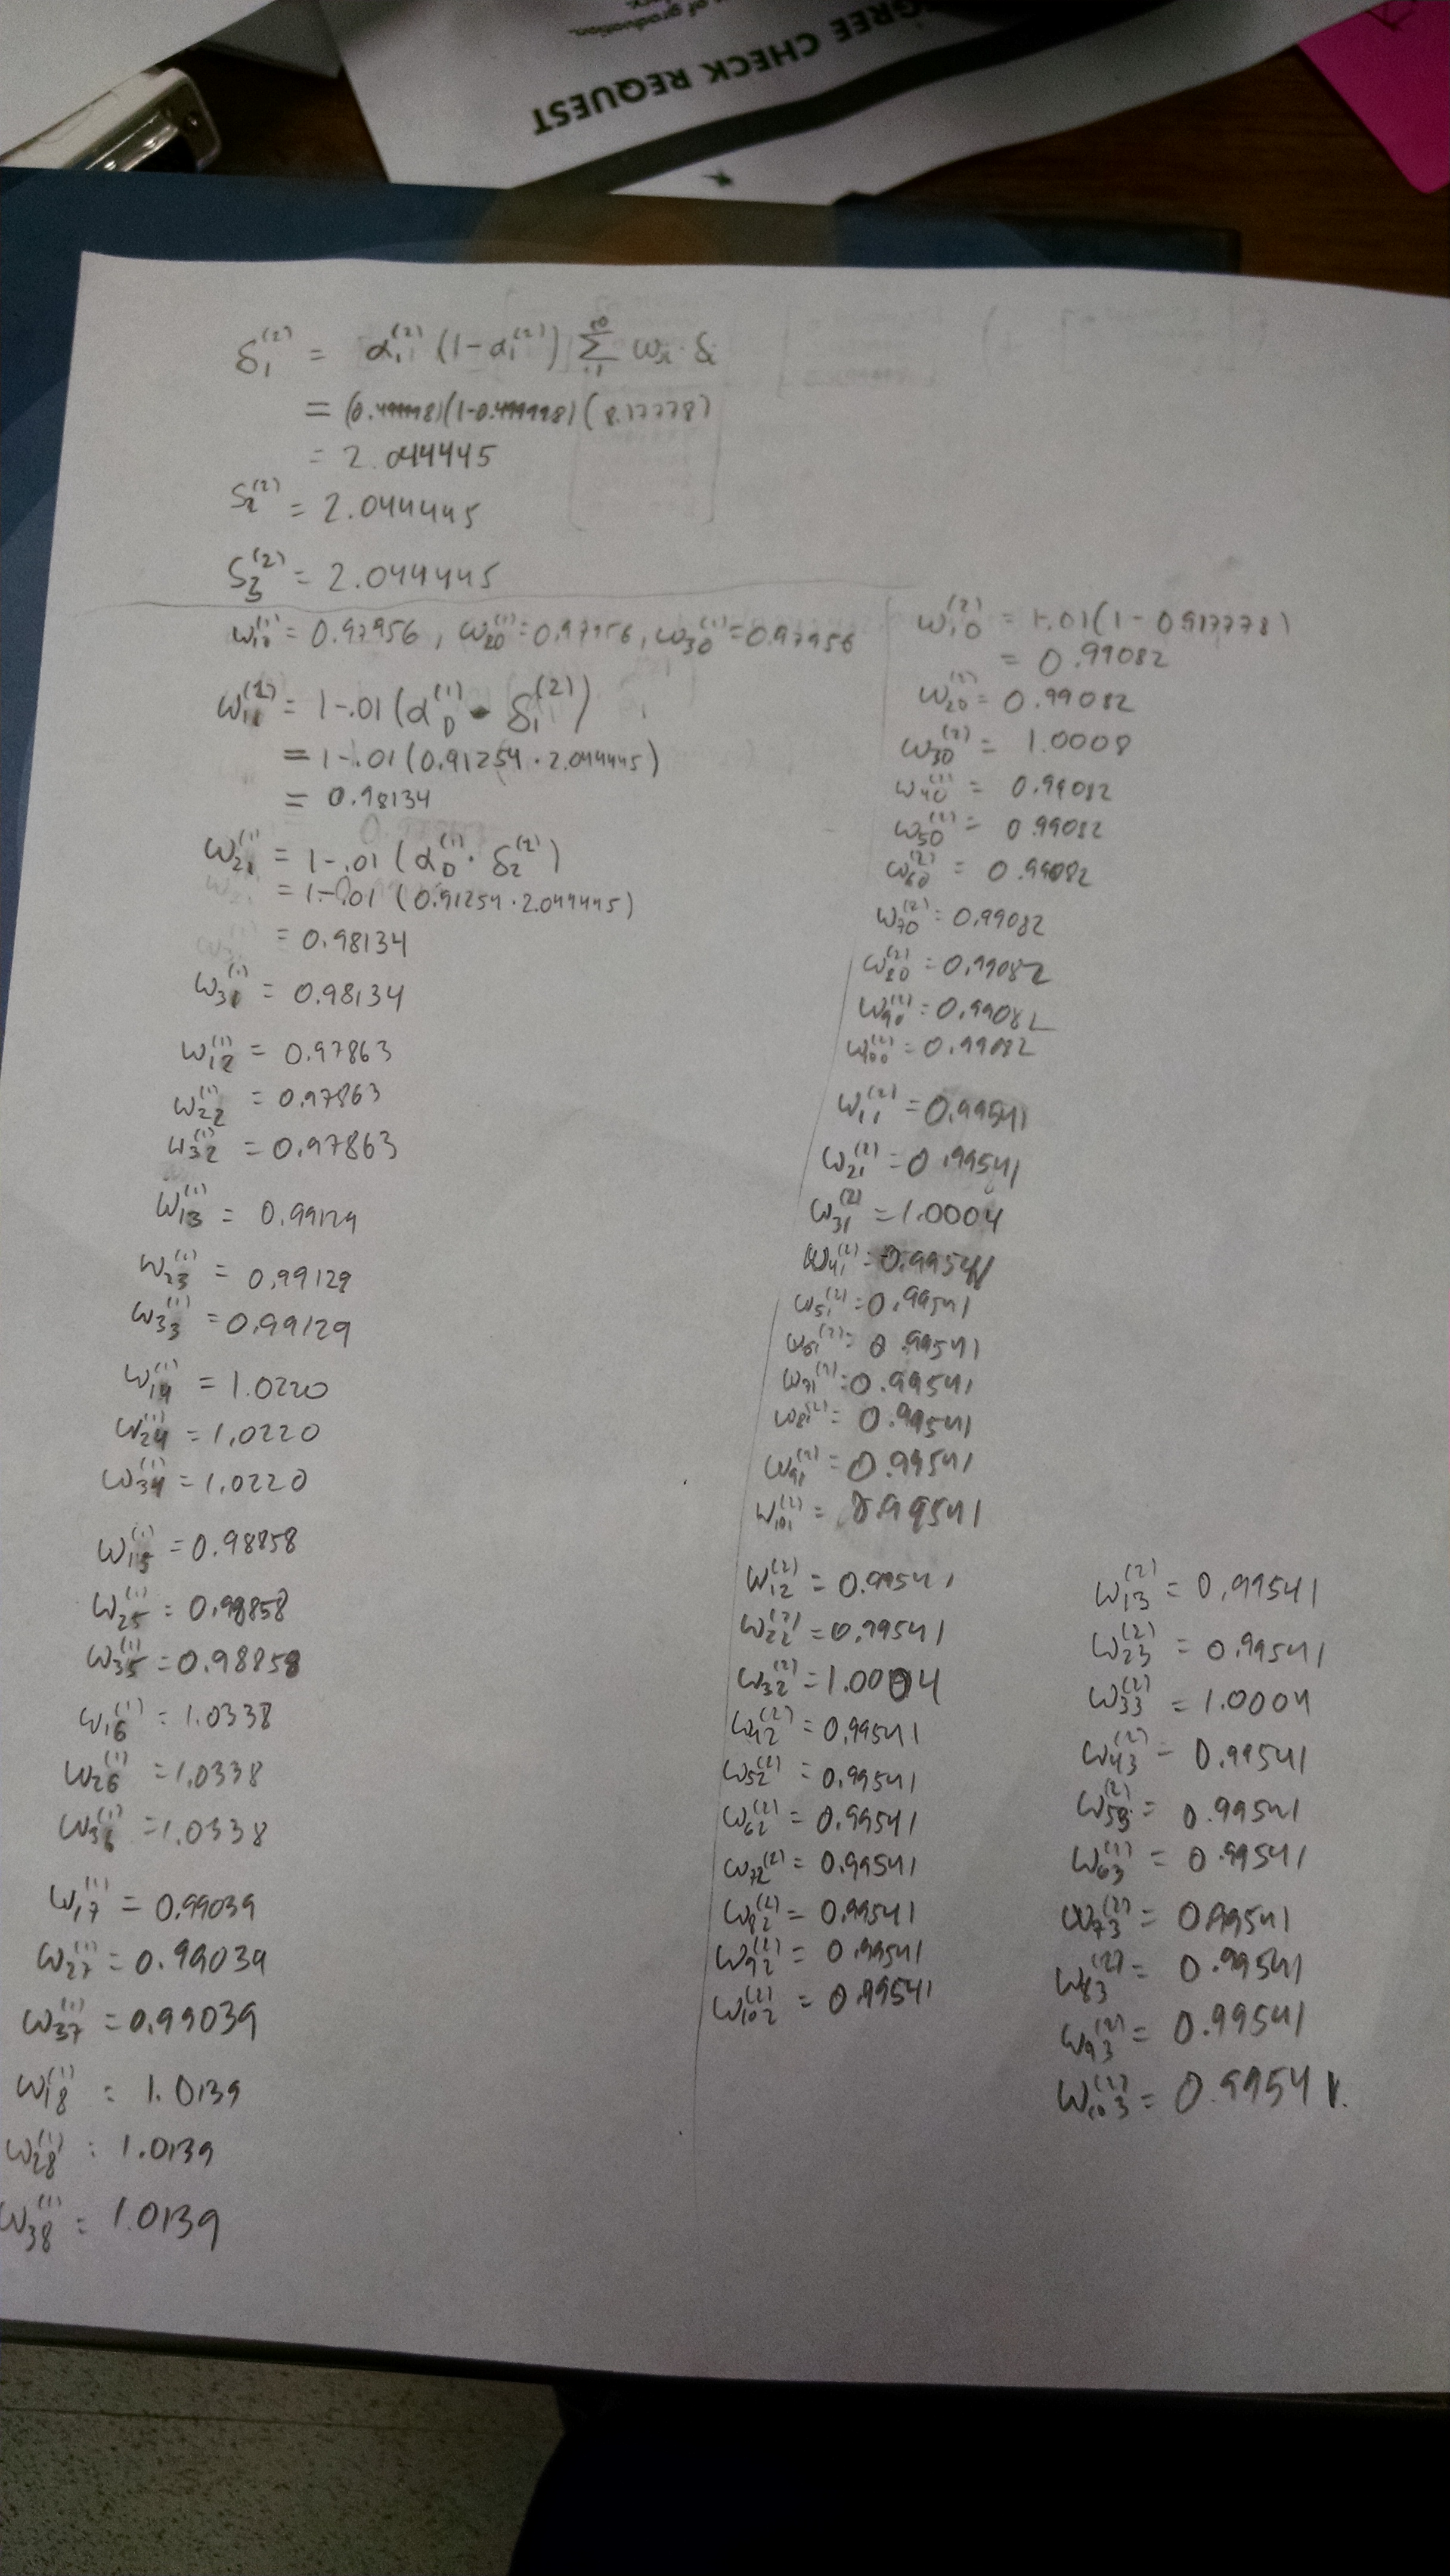 of graduation.
GREE CHECK REQUEST
δ₁⁽²⁾ = α₁⁽²⁾ (1-α₁⁽²⁾) Σ ωᵢ · δᵢ
= (0.499998)(1-0.499998)(8.17778)
= 2.044445
δ₂⁽²⁾ = 2.044445
δ₃⁽²⁾ = 2.044445
ω₁₀⁽¹⁾ = 0.97956, ω₂₀⁽¹⁾ = 0.97956, ω₃₀⁽¹⁾ = 0.97956
ω₁₁⁽¹⁾ = 1-.01(α₀⁽¹⁾ · δ₁⁽²⁾)
= 1-.01(0.91254 · 2.044445)
= 0.98134
ω₂₁⁽¹⁾ = 1-.01(α₀⁽¹⁾ · δ₂⁽²⁾)
= 1-.01(0.91254 · 2.044445)
= 0.98134
ω₃₁⁽¹⁾ = 0.98134
ω₁₂⁽¹⁾ = 0.97863
ω₂₂⁽¹⁾ = 0.97863
ω₃₂⁽¹⁾ = 0.97863
ω₁₃⁽¹⁾ = 0.99129
ω₂₃⁽¹⁾ = 0.99129
ω₃₃⁽¹⁾ = 0.99129
ω₁₄⁽¹⁾ = 1.0220
ω₂₄⁽¹⁾ = 1.0220
ω₃₄⁽¹⁾ = 1.0220
ω₁₅⁽¹⁾ = 0.98858
ω₂₅⁽¹⁾ = 0.98858
ω₃₅⁽¹⁾ = 0.98858
ω₁₆⁽¹⁾ = 1.0338
ω₂₆⁽¹⁾ = 1.0338
ω₃₆⁽¹⁾ = 1.0338
ω₁₇⁽¹⁾ = 0.99039
ω₂₇⁽¹⁾ = 0.99039
ω₃₇⁽¹⁾ = 0.99039
ω₁₈⁽¹⁾ = 1.0139
ω₂₈⁽¹⁾ = 1.0139
ω₃₈⁽¹⁾ = 1.0139
ω₁₀⁽²⁾ = 1-.01(1 - 0.917778)
= 0.99082
ω₂₀⁽²⁾ = 0.99082
ω₃₀⁽²⁾ = 1.0008
ω₄₀⁽²⁾ = 0.99082
ω₅₀⁽²⁾ = 0.99082
ω₆₀⁽²⁾ = 0.99082
ω₇₀⁽²⁾ = 0.99082
ω₈₀⁽²⁾ = 0.99082
ω₉₀⁽²⁾ = 0.99082
ω₁₀₀⁽²⁾ = 0.99082
ω₁₁⁽²⁾ = 0.99541
ω₂₁⁽²⁾ = 0.99541
ω₃₁⁽²⁾ = 1.0004
ω₄₁⁽²⁾ = 0.99541
ω₅₁⁽²⁾ = 0.99541
ω₆₁⁽²⁾ = 0.99541
ω₇₁⁽²⁾ = 0.99541
ω₈₁⁽²⁾ = 0.99541
ω₉₁⁽²⁾ = 0.99541
ω₁₀₁⁽²⁾ = 0.99541
ω₁₂⁽²⁾ = 0.99541
ω₂₂⁽²⁾ = 0.99541
ω₃₂⁽²⁾ = 1.0004
ω₄₂⁽²⁾ = 0.99541
ω₅₂⁽²⁾ = 0.99541
ω₆₂⁽²⁾ = 0.99541
ω₇₂⁽²⁾ = 0.99541
ω₈₂⁽²⁾ = 0.99541
ω₉₂⁽²⁾ = 0.99541
ω₁₀₂⁽²⁾ = 0.99541
ω₁₃⁽²⁾ = 0.99541
ω₂₃⁽²⁾ = 0.99541
ω₃₃⁽²⁾ = 1.0004
ω₄₃⁽²⁾ = 0.99541
ω₅₃⁽²⁾ = 0.99541
ω₆₃⁽²⁾ = 0.99541
ω₇₃⁽²⁾ = 0.99541
ω₈₃⁽²⁾ = 0.99541
ω₉₃⁽²⁾ = 0.99541
ω₁₀₃⁽²⁾ = 0.99541.